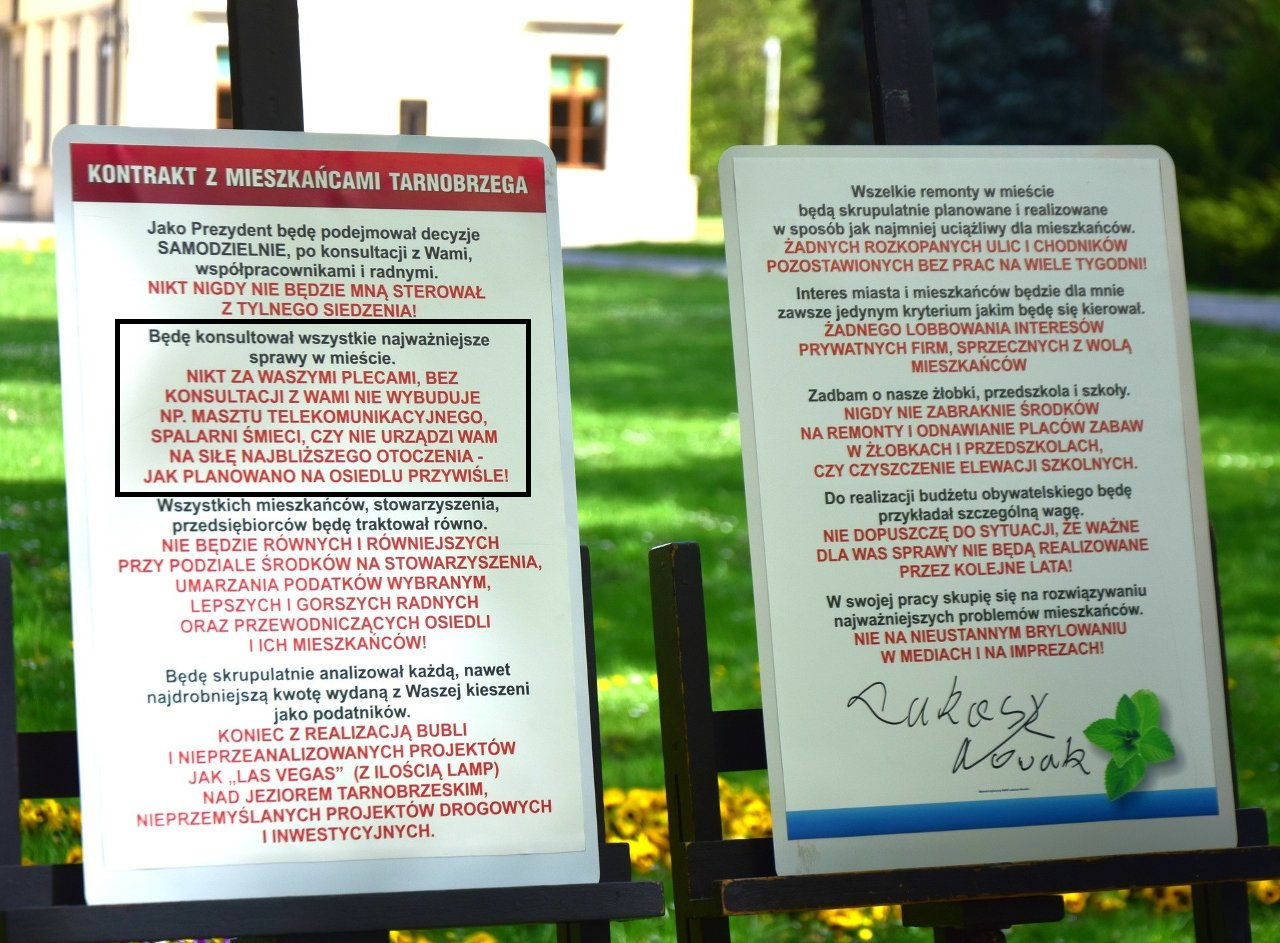 KONTRAKT Z MIESZKAŃCAMI TARNOBRZEGA
Jako Prezydent będę podejmował decyzje
SAMODZIELNIE, po konsultacji z Wami,
współpracownikami i radnymi.
NIKT NIGDY NIE BĘDZIE MNĄ STEROWAŁ
Z TYLNEGO SIEDZENIA!
Będę konsultował wszystkie najważniejsze
sprawy w mieście.
NIKT ZA WASZYMI PLECAMI, BEZ
KONSULTACJI Z WAMI NIE WYBUDUJE
NP. MASZTU TELEKOMUNIKACYJNEGO,
SPALARNI ŚMIECI, CZY NIE URZĄDZI WAM
NA SIŁĘ NAJBLIŻSZEGO OTOCZENIA -
JAK PLANOWANO NA OSIEDLU PRZYWIŚLE!
Wszystkich mieszkańców, stowarzyszenia,
przedsiębiorców będę traktował równo.
NIE BĘDZIE RÓWNYCH I RÓWNIEJSZYCH
PRZY PODZIALE ŚRODKÓW NA STOWARZYSZENIA,
UMARZANIA PODATKÓW WYBRANYM,
LEPSZYCH I GORSZYCH RADNYCH
ORAZ PRZEWODNICZĄCYCH OSIEDLI
I ICH MIESZKAŃCÓW!
Będę skrupulatnie analizował każdą, nawet
najdrobniejszą kwotę wydaną z Waszej kieszeni
jako podatników.
KONIEC Z REALIZACJĄ BUBLI
I NIEPRZEANALIZOWANYCH PROJEKTÓW
JAK „LAS VEGAS” (Z ILOŚCIĄ LAMP)
NAD JEZIOREM TARNOBRZESKIM,
NIEPRZEMYŚLANYCH PROJEKTÓW DROGOWYCH
I INWESTYCYJNYCH.
Wszelkie remonty w mieście
będą skrupulatnie planowane i realizowane
w sposób jak najmniej uciążliwy dla mieszkańców.
ŻADNYCH ROZKOPANYCH ULIC I CHODNIKÓW
POZOSTAWIONYCH BEZ PRAC NA WIELE TYGODNI!
Interes miasta i mieszkańców będzie dla mnie
zawsze jedynym kryterium jakim będę się kierował.
ŻADNEGO LOBBOWANIA INTERESÓW
PRYWATNYCH FIRM, SPRZECZNYCH Z WOLĄ
MIESZKAŃCÓW
Zadbam o nasze żłobki, przedszkola i szkoły.
NIGDY NIE ZABRAKNIE ŚRODKÓW
NA REMONTY I ODNAWIANIE PLACÓW ZABAW
W ŻŁOBKACH I PRZEDSZKOLACH,
CZY CZYSZCZENIE ELEWACJI SZKOLNYCH.
Do realizacji budżetu obywatelskiego będę
przykładał szczególną wagę.
NIE DOPUSZCZĘ DO SYTUACJI, ŻE WAŻNE
DLA WAS SPRAWY NIE BĘDĄ REALIZOWANE
PRZEZ KOLEJNE LATA!
W swojej pracy skupię się na rozwiązywaniu
najważniejszych problemów mieszkańców.
NIE NA NIEUSTANNYM BRYLOWANIU
W MEDIACH I NA IMPREZACH!
Łukasz
Nowak